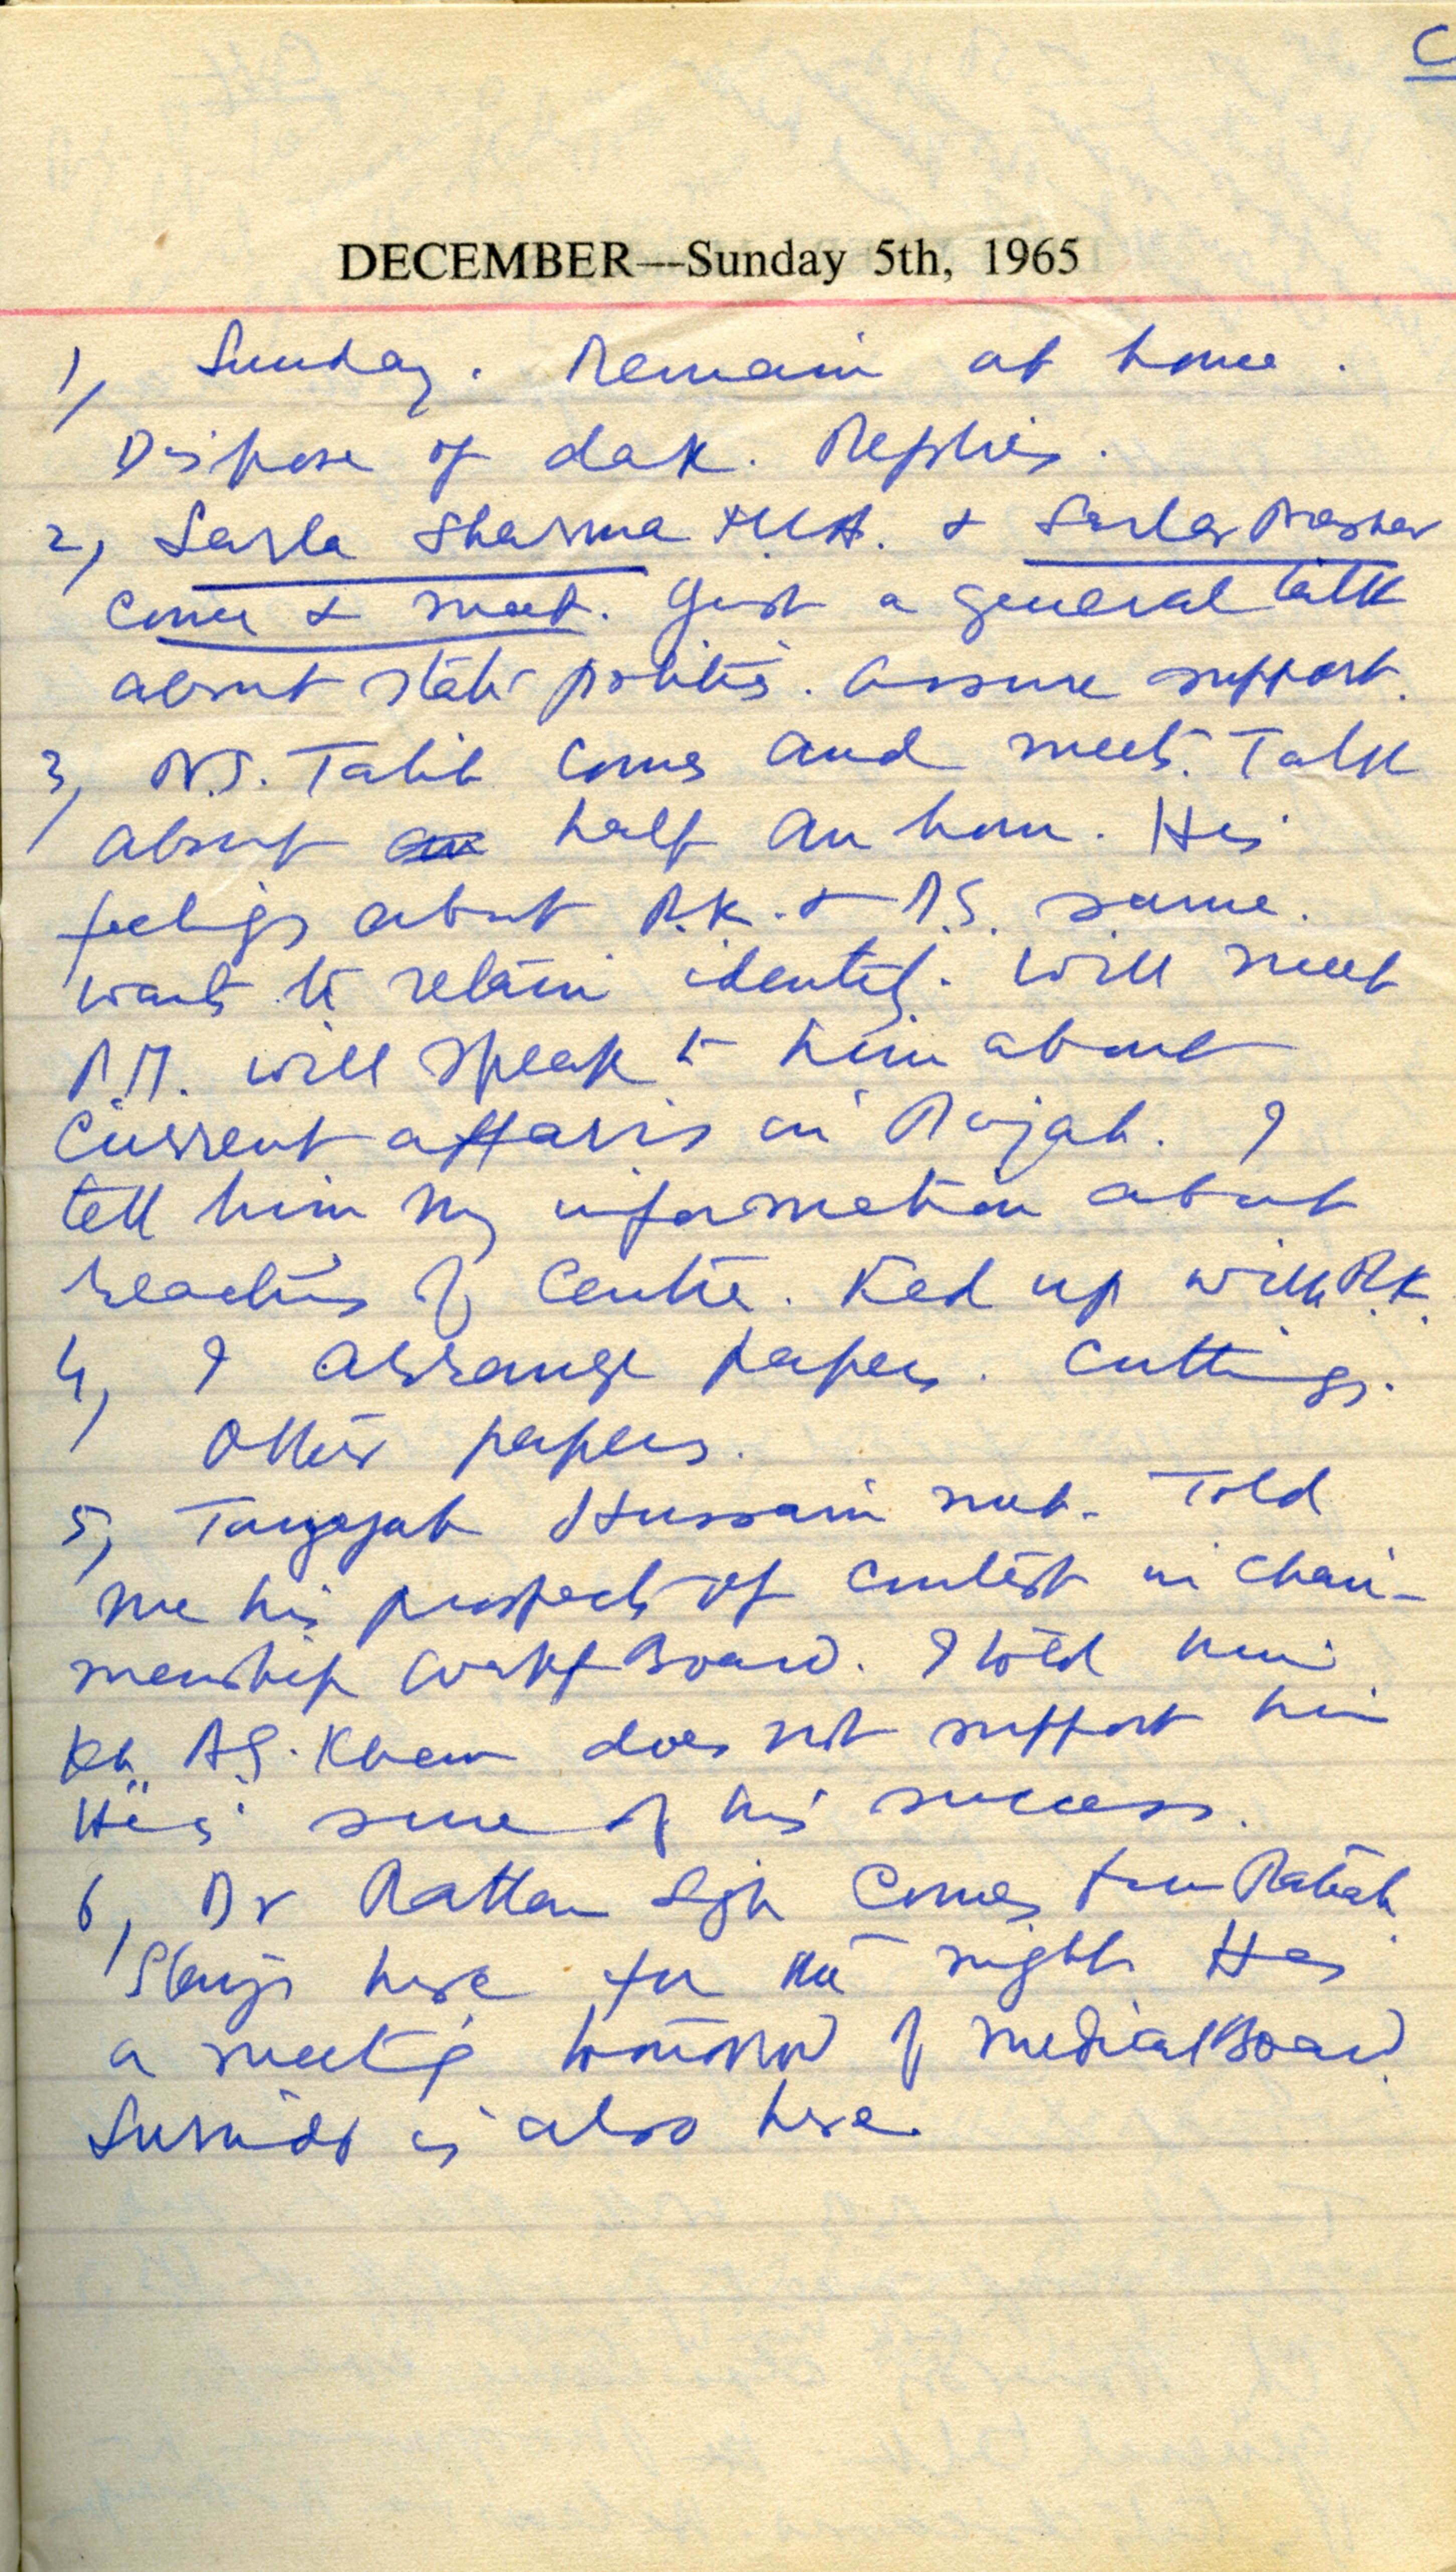 C
DECEMBER—Sunday 5th, 1965
1, Sunday. Remain at home.
Dispose of dak. Replies.
2, Sarla Sharma M.L.A. & Sarla Prasher
come & meet. Just a general talk
about state politics. Assure support.
3, N.S. Talib comes and meets. Talk
about half an hour. His
feelings about R.K. & D.S. same.
wants to retain identity. Will meet
P.M. will speak to him about
current affairs in Punjab. I
tell him my information about
reactions of Centre. Fed up with R.K.
4, I arrange papers. Cuttings.
Other papers.
5, Hussain met. Told
me his prospects of contest in chair-
manship Wakf Board. I told him
Kh. A.G. Khan does not support him
He is sure of his success.
6, Dr Rattan Sgh comes from
Stays here for the night. Has
a meeting tomorrow of medical Board
is also here.